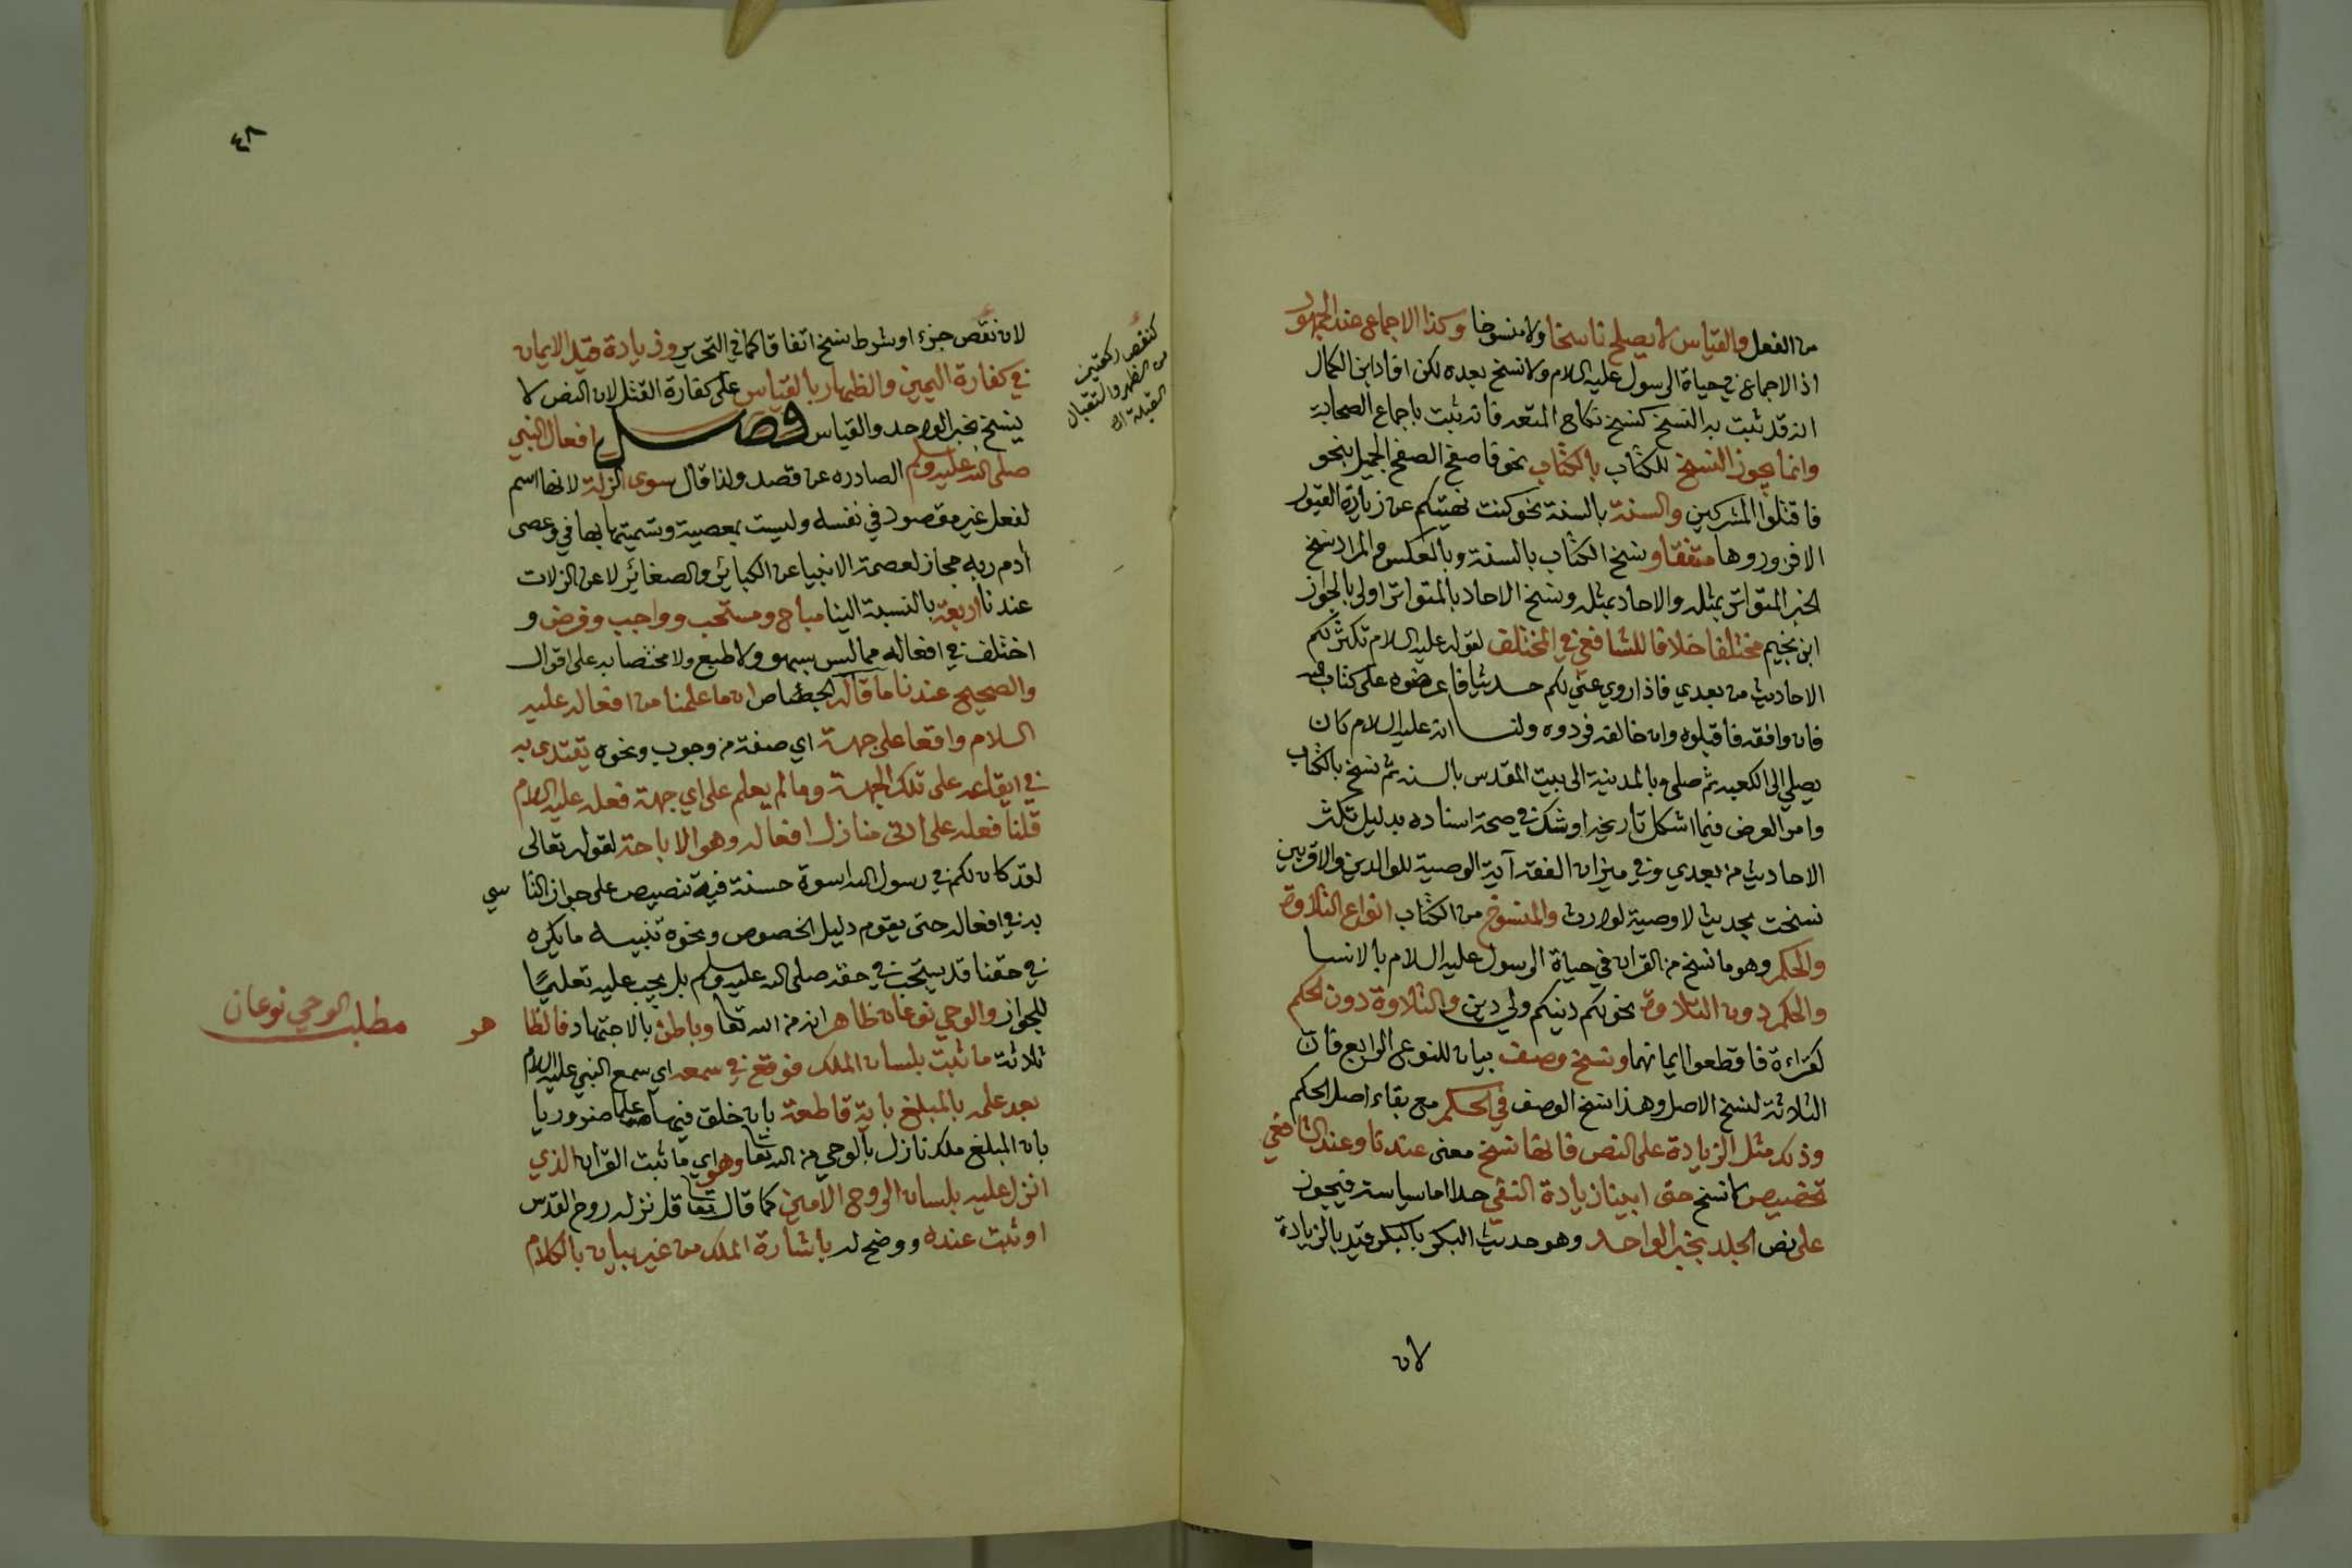 من الفعل والقياس لا يصلح ناسخا ولا منسوخا وكذا الاجماع عند الجمهور
اذ لا اجماع في حياة الرسول عليه السلام ولا نسخ بعده لكن افاد ابن الكمال
انه قد ثبت به النسخ كنسخ نكاح المتعه فانه ثبت باجماع الصحابة
وانما يجوز النسخ للكتاب بالكتاب نحو فاصفح الصفح الجميل بنحو
فاقتلوا المشركين والسنة بالسنة نحو كنت نهيتكم عن زيارة القبور
الا فزوروها متفقا ونسخ الكتاب بالسنة وبالعكس والمراد نسخ
الخبر المتواتر بمثله والاحاد بمثله ونسخ الاحاد بالمتواتر اولى بالجواز
ابن نجيم مختلفا خلافا للشافعي في المختلف لقوله عليه السلام تكثر لكم
الاحاديث من بعدي فاذا روي عني لكم حديثا فاعرضوه على كتاب الله
فان وافقه فاقبلوه وان خالفه فردوه ولنا انه عليه السلام كان
يصلي الى الكعبه ثم صلى بالمدينة الى بيت المقدس بالسنه ثم نسخ بالكتاب
وامر العرض فيما اشكل تاريخه او شك في صحة اسناده بدليل تكثر
الاحاديث من بعدي وفي ميزان الفقه آية الوصية للوالدين والاقربين
نسخت بحديث لا وصية لوارث والمنسوخ من الكتاب انواع التلاوة
والحكم وهو ما نسخ من القران في حياة الرسول عليه السلام بالانسا
والحكم دون التلاوة نحو لكم دينكم ولي دين والتلاوة دون الحكم
كقراءة فاقطعوا ايمانهما ونسخ وصف بيان للنوع الرابع فان
الثلاثة لنسخ الاصل وهذا نسخ الوصف في الحكم مع بقاء اصل الحكم
وذلك مثل الزيادة على النص فانها نسخ معنى عندنا وعند الشافعي
تخصيص لا نسخ حتى ابينا زيادة النفي حدا اما سياسة فيجوز
على نص الجلد بخبر الواحد وهو حديث البكر بالبكر وقيد بالزيادة
لان
٤٨
لان نقص جزء او شرط نسخ اتفاقا كما في التحرير وزيادة قيد الايمان
في كفارة اليمين والظهار بالقياس على كفارة القتل لان النص لا
ينسخ بخبر الواحد والقياس فصل افعال النبي
صلى الله عليه وسلم الصادره عن قصد ولذا قال سوى الزلة لانها اسم
لفعل غير مقصود في نفسه وليست بمعصية وتسميتها بها في وعصى
آدم ربه مجاز لعصمة الانبيا عن الكبائر والصغائر لا عن الزلات
عندنا اربعة بالنسبة الينا مباح ومستحب وواجب وفرض و
اختلف في افعاله مما ليس بسهو ولا طبع ولا مختصا به على اقوال
والصحيح عندنا ما قاله الجصاص ان ما علمنا من افعاله عليه
السلام واقعا على جهة اي صفة من وجوب ونحوه يقتدى به
في ايقاعه على تلك الجهة وما لم يعلم على اي جهة فعله عليه السلام
قلنا فعله على ادنى منازل افعاله وهو الاباحة لقوله تعالى
لقد كان لكم في رسول الله اسوة حسنة فيه تنصيص على جواز التاسي
به في افعاله حتى يقوم دليل الخصوص ونحوه تنبيه ما يكره
في حقنا قد يستحب في حقه صلى الله عليه وسلم بل يجب عليه تعليما
للجواز والوحي نوعان ظاهر انه من الله تعا وباطن بالاجتهاد فالظاهر
ثلاثة ما ثبت بلسان الملك فوقع في سمعه اي سمع النبي عليه السلام
بعد علمه بالمبلغ باية قاطعة بان خلق فيه علما ضروريا
بان المبلغ ملك نازل بالوحي من الله تعا وهو اي ما ثبت القران الذي
انزل عليه بلسان الروح الامين كما قال تعا قل نزله روح القدس
او ثبت عنده ووضح له باشارة الملك من غير بيان بالكلام
كنقص ركعتين
من الظهر والستقبال
القبلة اه
مطلب الوحي نوعان